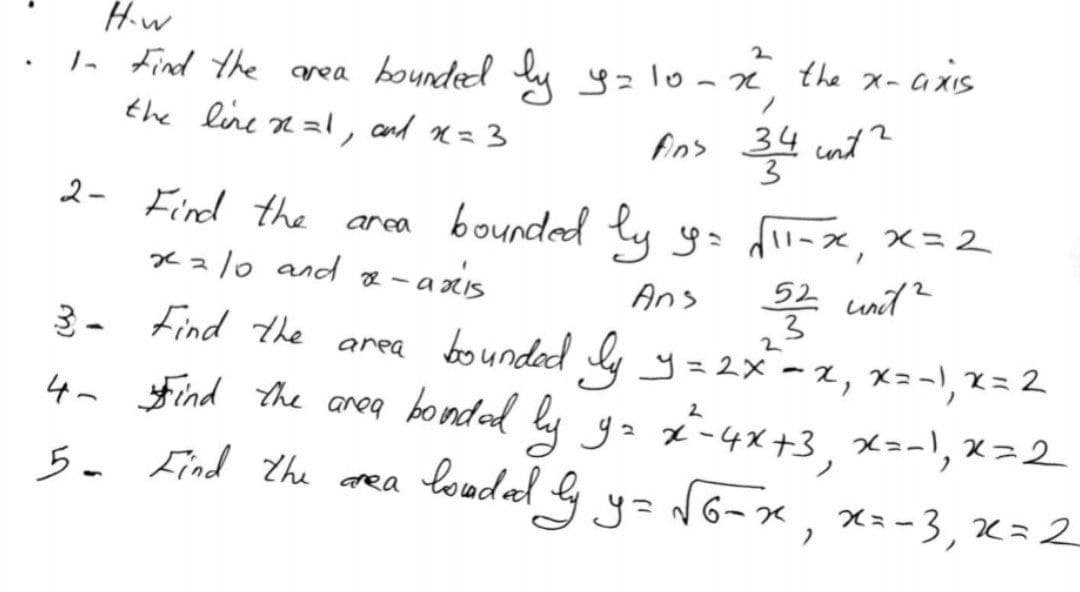 H.w
1- Find the area bounded by y = 10 - x², the x-axis
the line x = 1, and x = 3
Ans 34/3 unit²
2- Find the area bounded by y = √11-x, x = 2
x = 10 and x-axis
Ans 52/3 unit²
3- Find the area bounded by y = 2x² - x, x = -1, x = 2
4- Find the area bonded by y = x² - 4x + 3, x = -1, x = 2
5- Find the area bouded by y = √6-x, x = -3, x = 2